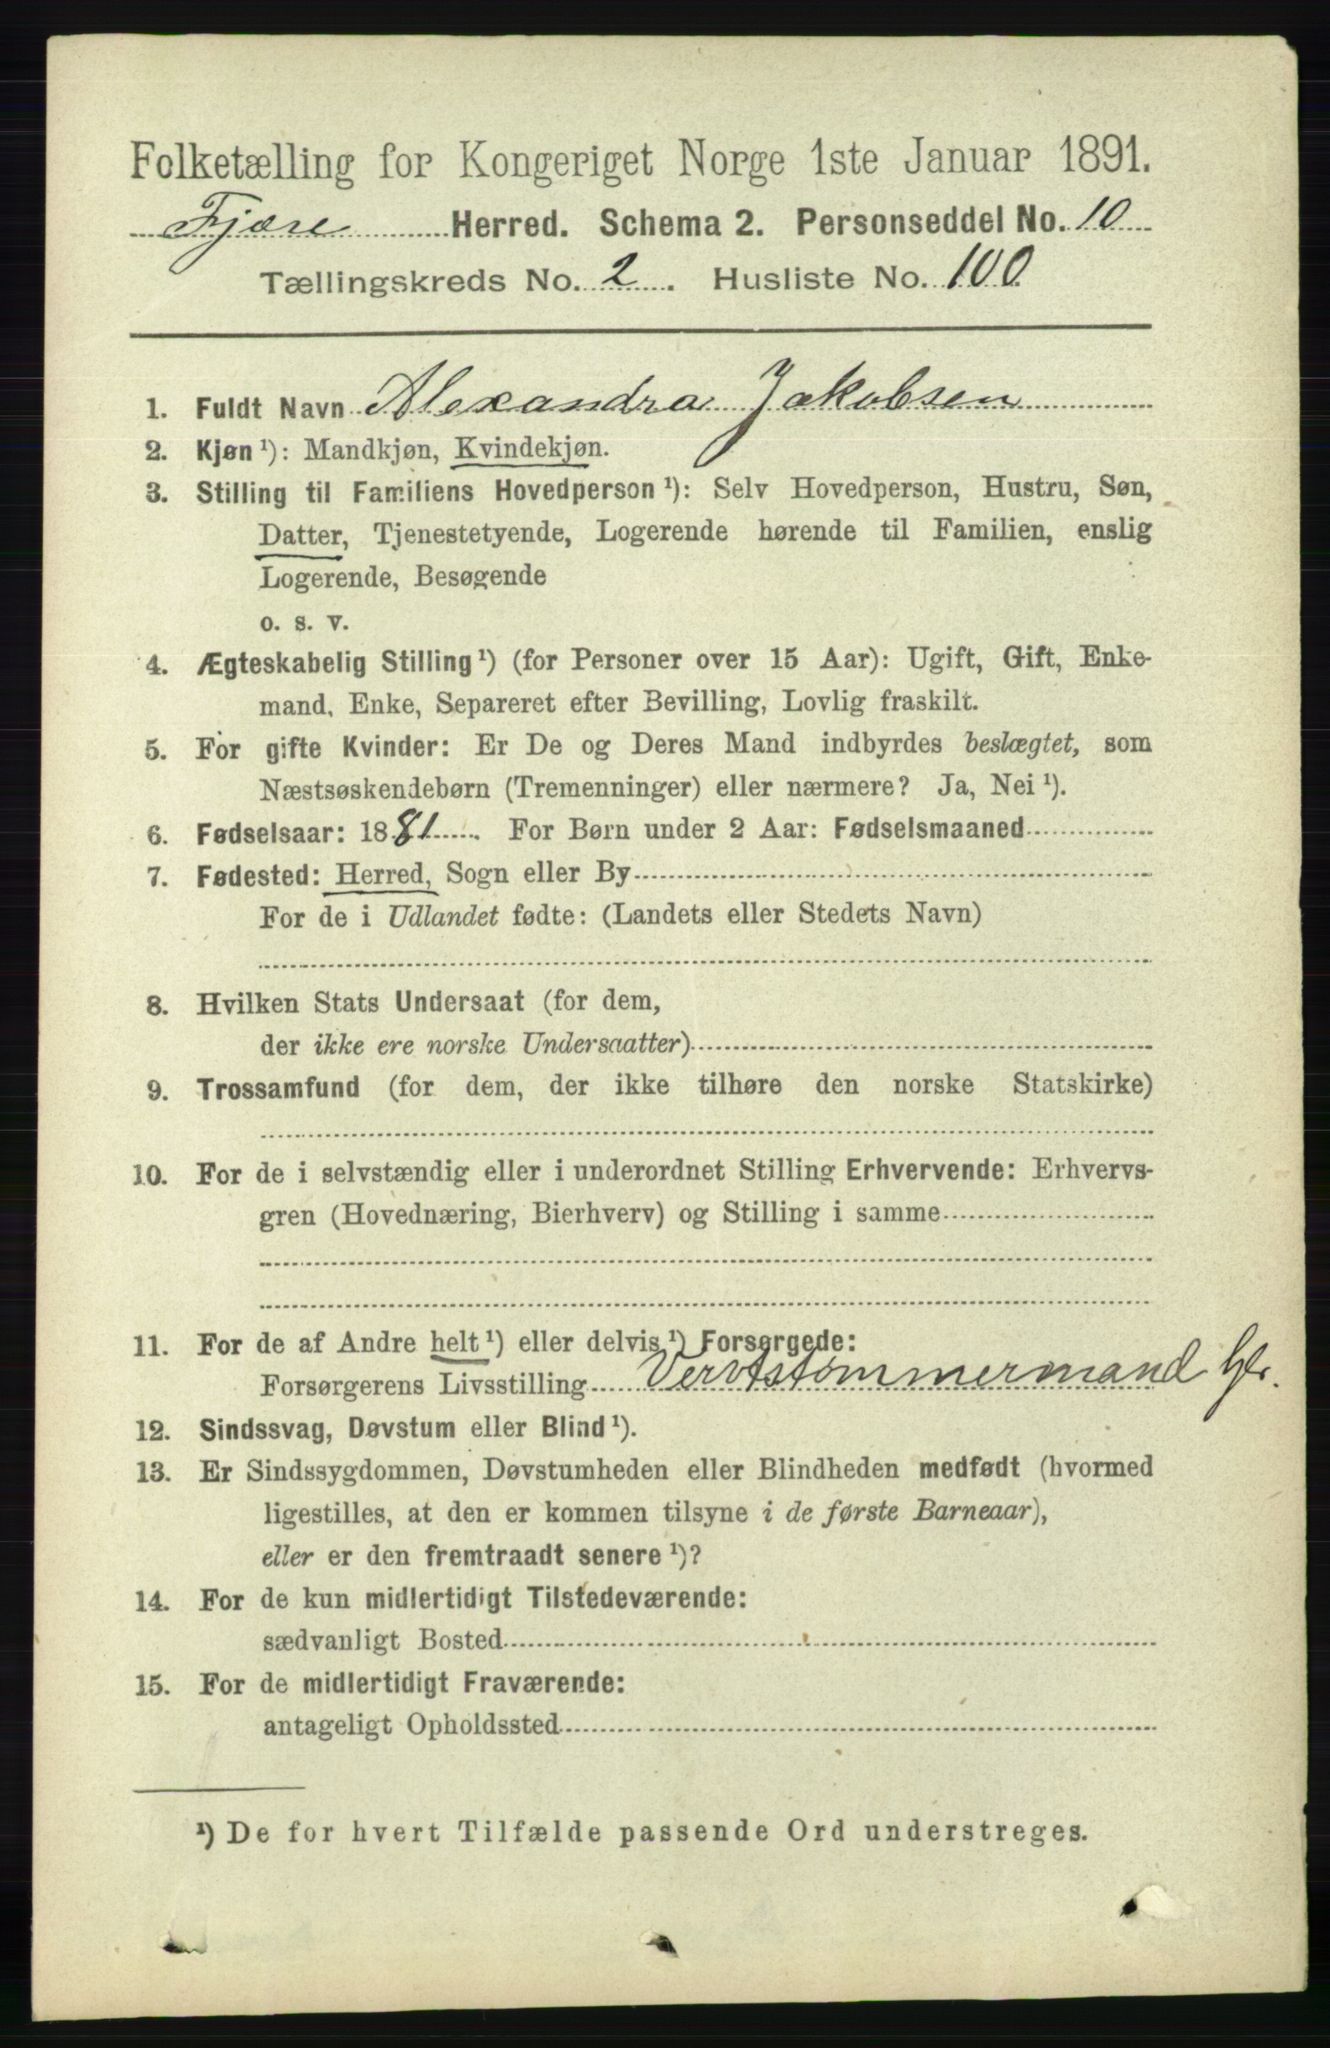 Folketælling for Kongeriget Norge 1ste Januar 1891.
Fjære Herred. Schema 2. Personseddel No. 10
Tællingskreds No. 2. Husliste No. 100
1. Fuldt Navn Alexandra Jakobsen
2. Kjøn¹): Mandkjøn, Kvindekjøn.
3. Stilling til Familiens Hovedperson¹): Selv Hovedperson, Hustru, Søn,
Datter, Tjenestetyende, Logerende hørende til Familien, enslig
Logerende, Besøgende
o. s. v.
4. Ægteskabelig Stilling¹) (for Personer over 15 Aar): Ugift, Gift, Enke-
mand, Enke, Separeret efter Bevilling, Lovlig fraskilt.
5. For gifte Kvinder: Er De og Deres Mand indbyrdes beslægtet, som
Næstsøskendebørn (Tremenninger) eller nærmere? Ja, Nei¹).
6. Fødselsaar: 1881. For Børn under 2 Aar: Fødselsmaaned
7. Fødested: Herred, Sogn eller By
For de i Udlandet fødte: (Landets eller Stedets Navn)
8. Hvilken Stats Undersaat (for dem,
der ikke ere norske Undersaatter)
9. Trossamfund (for dem, der ikke tilhøre den norske Statskirke)
10. For de i selvstændig eller i underordnet Stilling Erhvervende: Erhvervs-
gren (Hovednæring, Bierhverv) og Stilling i samme
11. For de af Andre helt¹) eller delvis¹) Forsørgede:
Forsørgerens Livsstilling Vervtstømmermand
12. Sindssvag, Døvstum eller Blind¹).
13. Er Sindssygdommen, Døvstumheden eller Blindheden medfødt (hvormed
ligestilles, at den er kommen tilsyne i de første Barneaar),
eller er den fremtraadt senere¹)?
14. For de kun midlertidigt Tilstedeværende:
sædvanligt Bosted
15. For de midlertidigt Fraværende:
antageligt Opholdssted
¹) De for hvert Tilfælde passende Ord understreges.